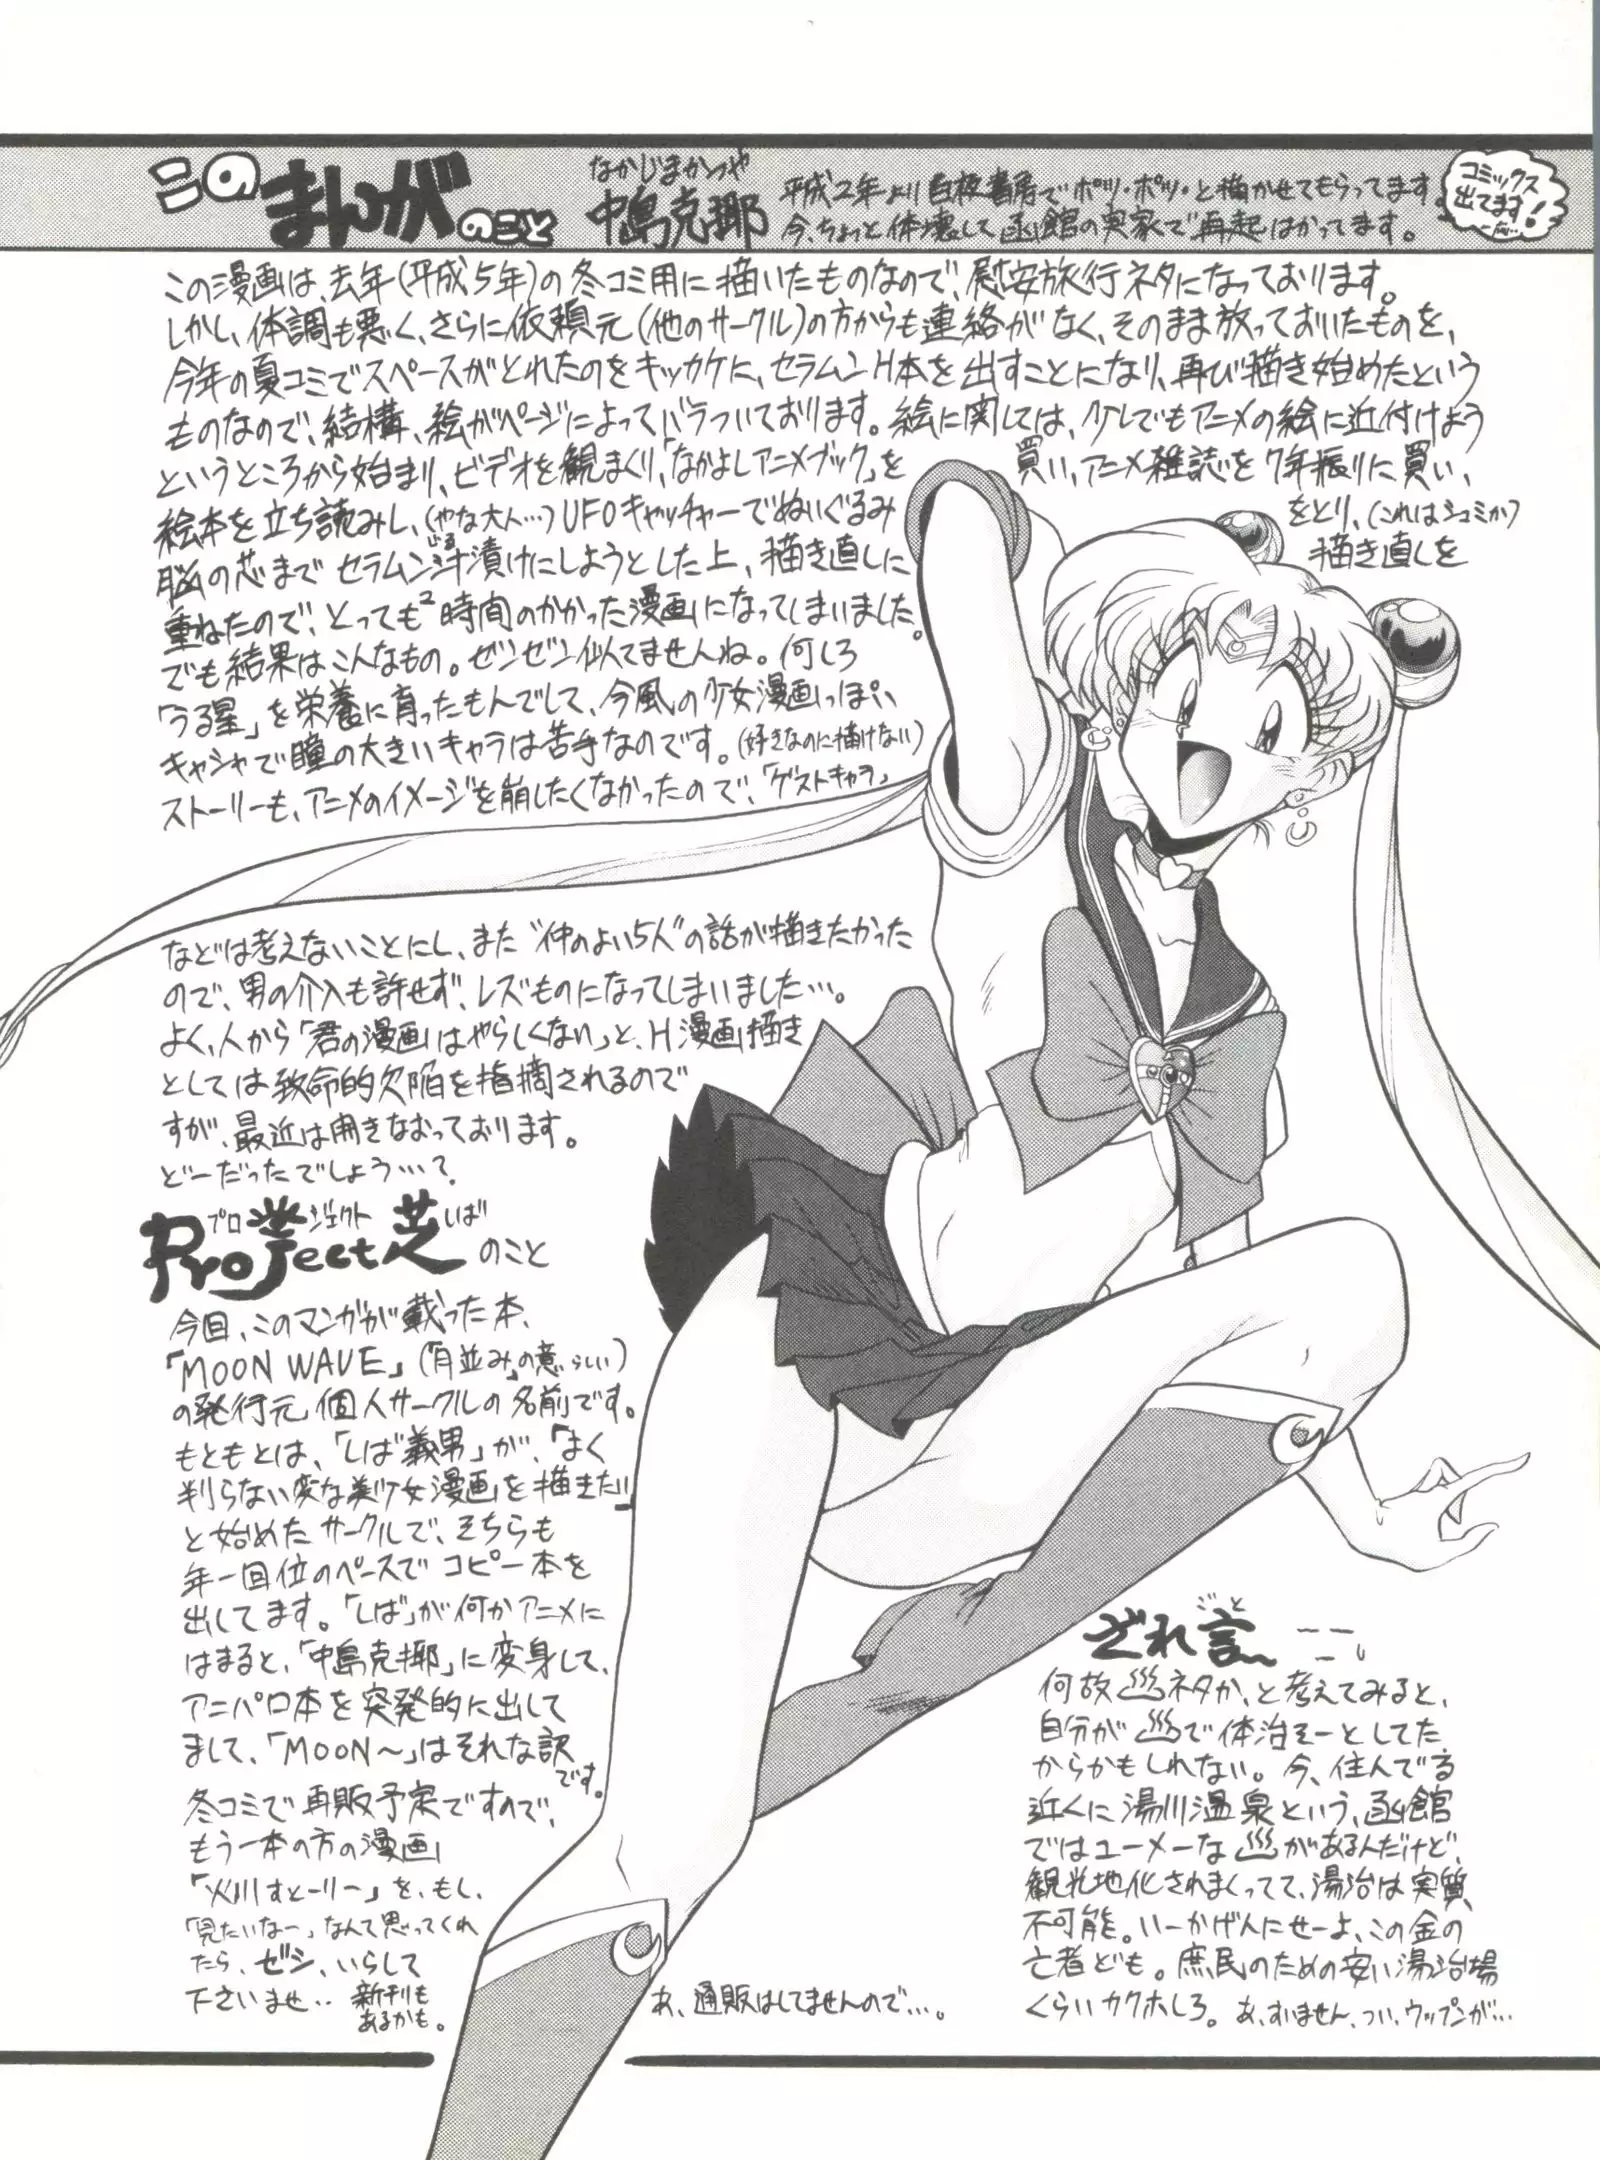 このまんがのこと
なかじまかつや
中島克耶
平成2年より白夜書房でポツ・ポツ・と描かせてもらってます。
今、ちょっと体壊して函館の実家で再起はかってます。
コミックス
出てます!
この漫画は、去年(平成5年)の冬コミ用に描いたものなので、慰安旅行ネタになっております。
しかし、体調も悪く、さらに依頼元(他のサークル)の方からも連絡がなく、そのまま放っておいたものを、
今年の夏コミでスペースがとれたのをキッカケに、セラムンH本を出すことになり、再び描き始めたという
ものなので、結構、絵がページによってバラついております。絵に関しては、少しでもアニメの絵に近付けよう
というところから始まり、ビデオを観まくり、「なかよしアニメブック」を買い、アニメ雑誌を7年振りに買い、
絵本を立ち読みし、(やな大人…)UFOキャッチャーでぬいぐるみをとり、(これはシュミか)
脳の芯までセラムン汁漬けにしようとした上、描き直しに描き直しを
じる
重ねたので、とっても²時間のかかった漫画になってしまいました。
でも結果はこんなもの。ゼンゼン似てませんね。何しろ
「うる星」を栄養に育ったもんでして、今風の少女漫画っぽい、
キャシャで瞳の大きいキャラは苦手なのです。(好きなのに描けない)
ストーリーも、アニメのイメージを崩したくなかったので、「ゲストキャラ」
などは考えないことにし、また“仲のよい5人”の話が描きたかった
ので、男の介入も許せず、レズものになってしまいました…。
よく、人から「君の漫画はやらしくない」と、H漫画描き
としては致命的欠陥を指摘されるので
すが、最近は開きなおっております。
どーだったでしょう…?
プロジェクトしば
Project芝のこと
今回、このマンガが載った本、
「MOON WAVE」(「月並み」の意らしい)
の発行元、個人サークルの名前です。
もともとは、「しば義男」が、「まく
判らない変な美少女漫画を描きだ」
と始めたサークルで、そちらも
年一回位のペースでコピー本を
出してます。「しば」が何かアニメに
はまると、「中島克耶」に変身して、
アニパロ本を突発的に出して
まして、「MOON〜」はそれな訳
です。
冬コミで再販予定ですので、
もう一本の方の漫画
「火川すとーりー」を、もし、
「見たいなー」なんて思ってくれ
たら、ゼシ、いらして
下さいませ‥
新刊も
あるかも。
あ、通販はしてませんので…。
ざれ言
ごと
何故♨ネタか、と考えてみると、
自分が♨で体治そーとしてた
からかもしれない。今、住んでる
近くに湯川温泉という、函館
ではユーメーな♨があるんだけど、
観光地化されまくってて、湯治は実質
不可能。いーかげんにせーよ、この金の
亡者ども。庶民のための安い湯治場
くらいカクホしろ。あ、すいません、つい、ウップンが…